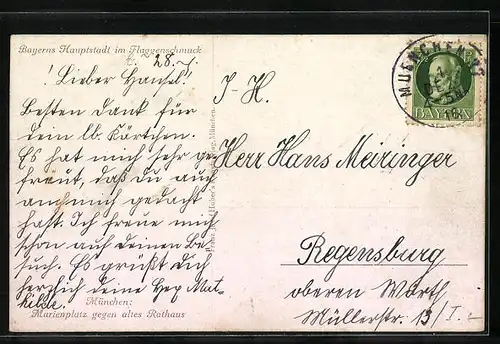 Bayerns Hauptstadt im Flaggenschmuck
28.
! Lieber Hansel!
Besten Dank für
dein lb. Kärtchen.
Es hat mich sehr ge-
freut, daß Du auch
an mich gedacht
hast. Ich freue mich
schon auf deinen Be-
such. Es grüßt Dich
herzlich deine Mat-
hilde.
München:
Marienplatz gegen altes Rathaus
MUENCHEN
BAYERN
I–H.
Herr Hans Meiringer
Regensburg
oberen Wörth
Müllerstr. 13/I.